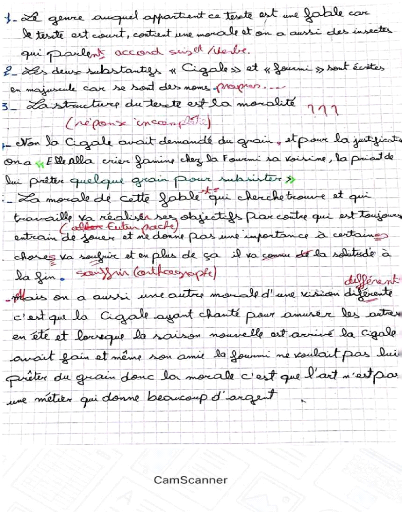 1- Le genre auquel appartient ce texte est une fable car
le texte est court, contient une morale et on a aussi des insectes
qui parlent accord sujet / verbe.
2- Les deux substantifs « Cigale » et « fourmi » sont écrites
en majuscule car se sont des noms propres....
3- La structure du texte est la moralité ???
(réponse incomplète)
Non la Cigale avait demandé du grain, et pour la justification
on a « Elle Alla crier famine chez la Fourmi sa voisine, la priant de
lui prêter quelque grain pour subsister »
- La morale de cette fable qui cherche trouve et qui
travaille va réaliser ses objectifs par contre qui est toujours
(Futur proche)
entrain de jouer et ne donne pas une importance à certaines
choses va soufrir et en plus de ça il va de la solitude à
la fin. souffrir (orthographe)
différente
Mais on a aussi une autre morale d'une vision différente
c'est que la Cigale ayant chanté pour amuser les autres
en été et lorsque la saison nouvelle est arrivé la Cigale
avait faim et même son amie la fourmi ne voulait pas lui
prêter du grain donc la morale c'est que l'art n'est pas
une métier qui donne beaucoup d'argent
CamScanner